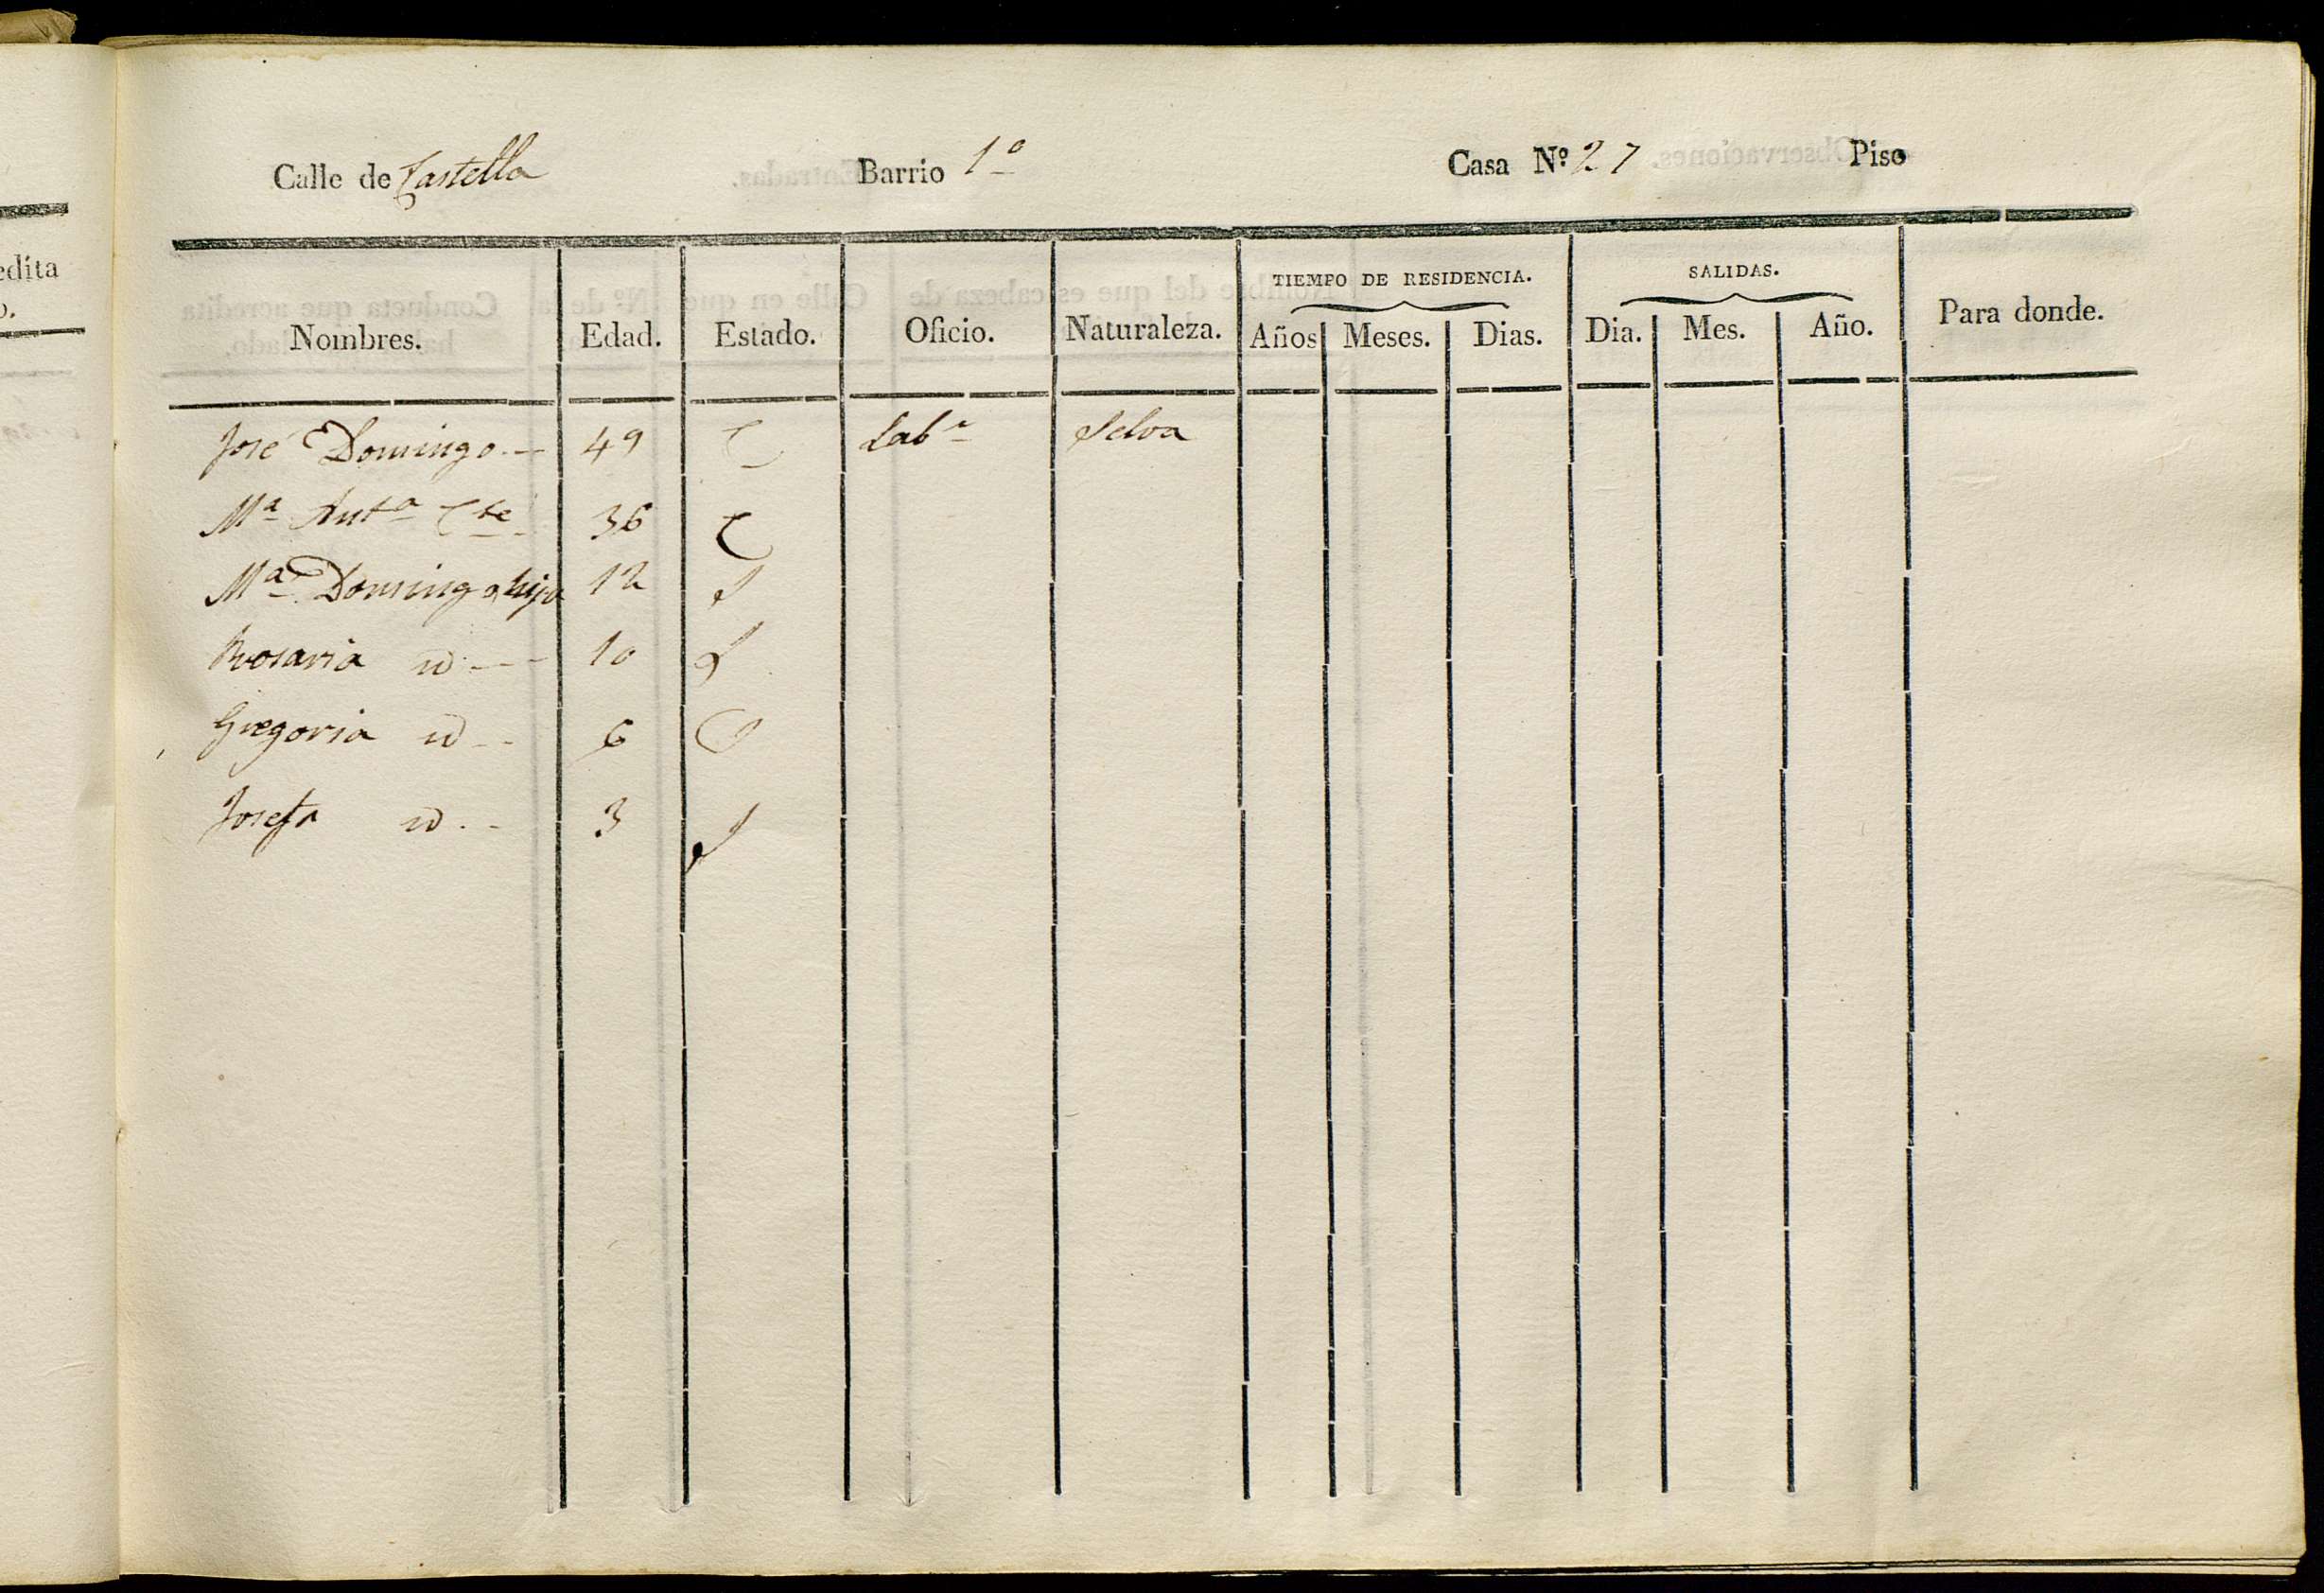 edita
o.
Calle de Castella Barrio 1º Casa Nº 27 Piso
Nombres. Edad. Estado. Oficio. Naturaleza. TIEMPO DE RESIDENCIA. SALIDAS. Para donde.
Años Meses. Dias. Dia. Mes. Año.
José Domingo.— 49 C Labr Selva
Mª Antª Cte 36 C
Mª Domingo, hija 12 S
Rosaria id - - - 10 S
Gregoria id - - 6 S
Josefa id . - 3 S